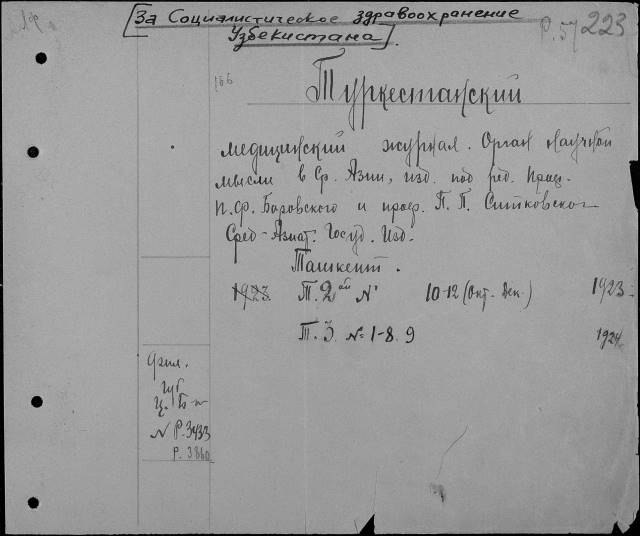 [За Социалистическое здравоохранение
Узбекистана].
Р.57 223
166
Туркестанский
медицинский журнал. Орган научной
мысли в Ср. Азии, изд. под ред. Проф.
П.Ф. Боровского и проф. П. П. Ситковског
Сред-Азиат. Госуд. Изд.
Ташкент.
1923. Т. 2ой № 10-12 (Окт.-Дек.) 1923
Т. 3. № 1-8. 9 1924
Фил.
Губ
Ц. Б-
N Р.3433
Р. 3860